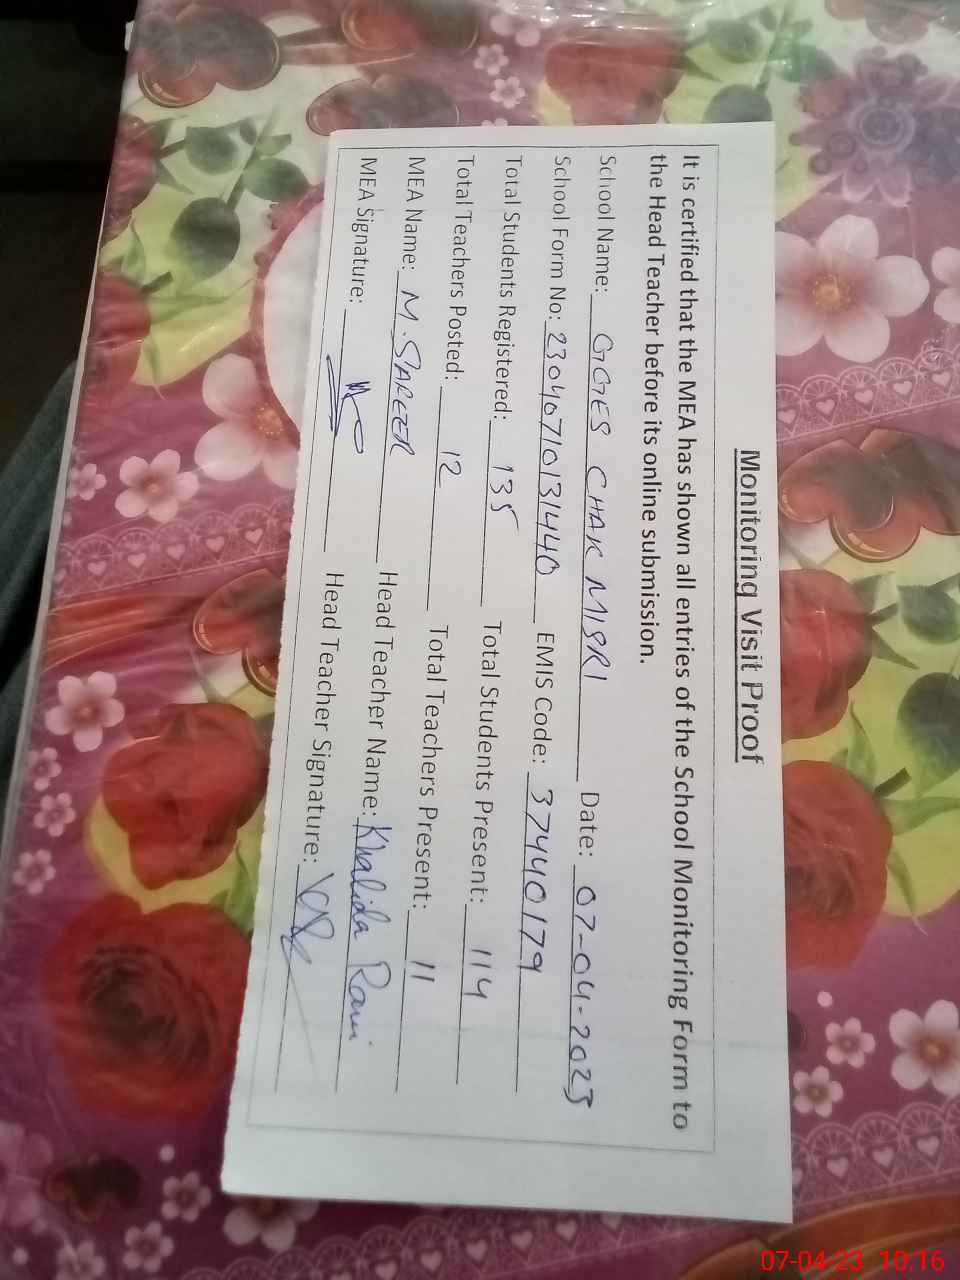 Monitoring Visit Proof
It is certified that the MEA has shown all entries of the School Monitoring Form to
the Head Teacher before its online submission.
School Name: GGES CHAK MISRI Date: 07-04-2023
School Form No: 23040710131440 EMIS Code: 37440179
Total Students Registered: 135 Total Students Present: 114
Total Teachers Posted: 12 Total Teachers Present: 11
MEA Name: M. SAREER Head Teacher Name: Khalida Rani
MEA Signature: Head Teacher Signature:
07-04-23 10:16